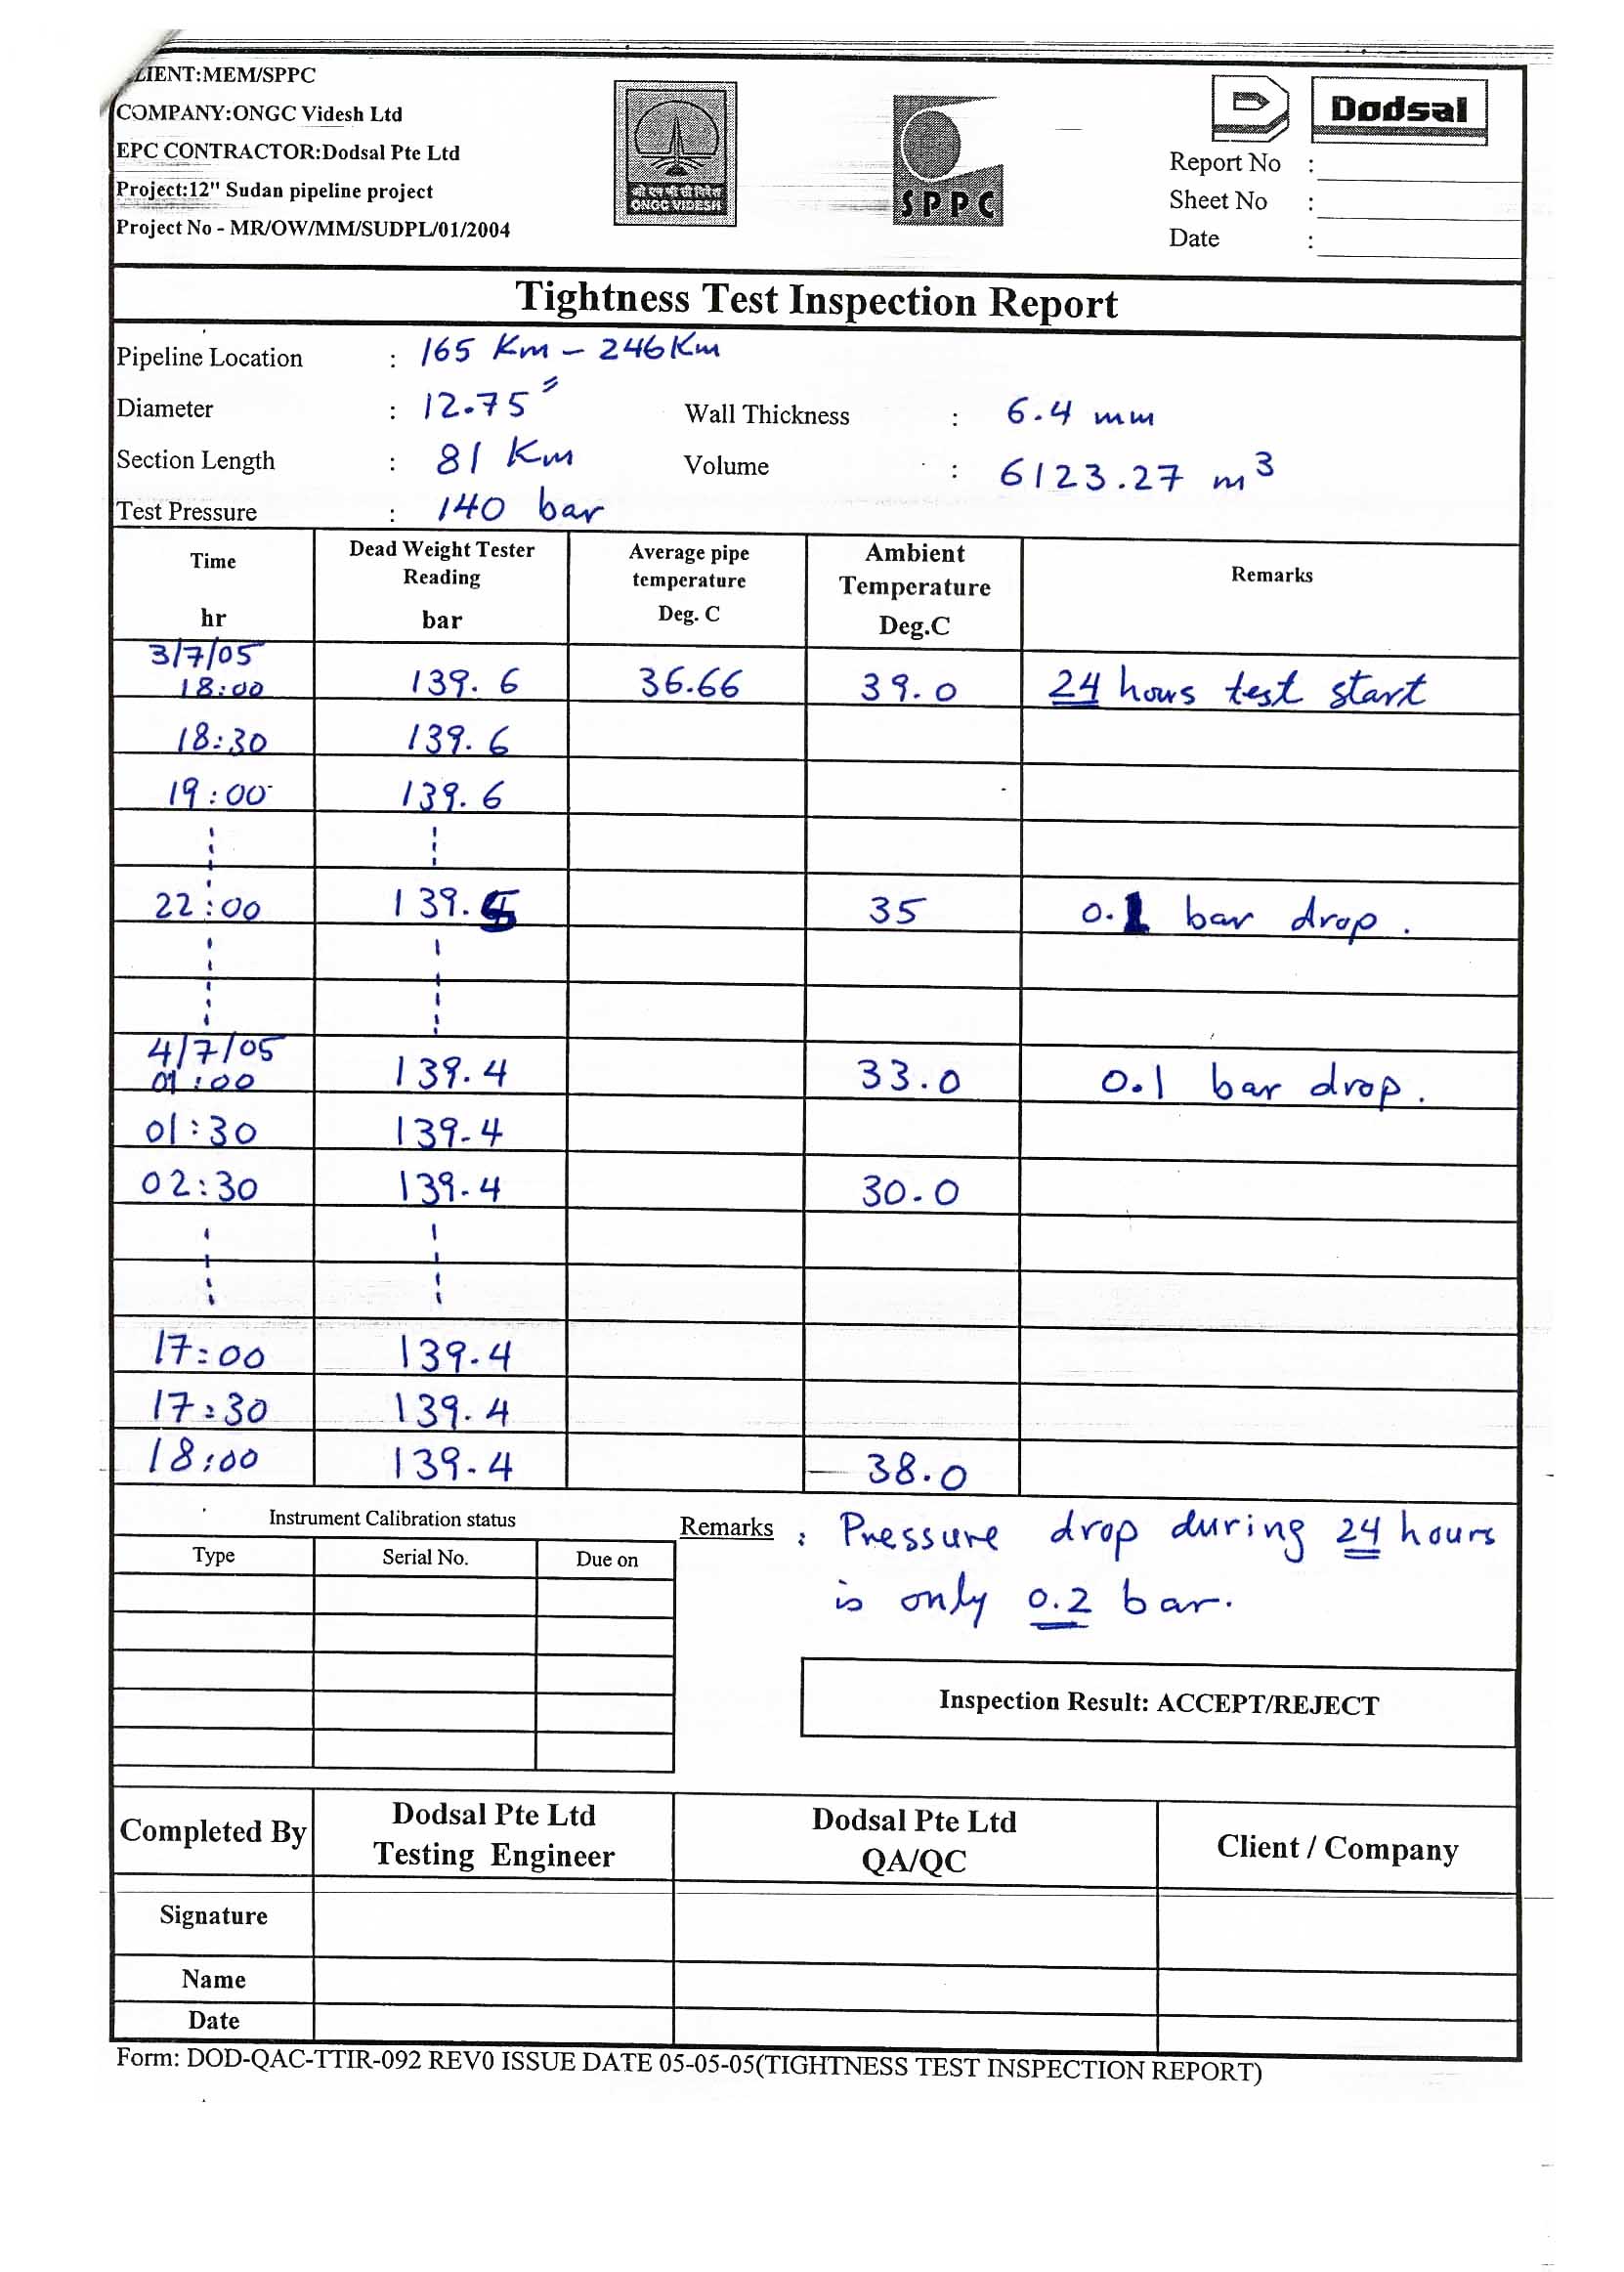 CLIENT:MEM/SPPC
COMPANY:ONGC Videsh Ltd
EPC CONTRACTOR:Dodsal Pte Ltd
Project:12" Sudan pipeline project
Project No - MR/OW/MM/SUDPL/01/2004
ओ एन जी सी विदेश
ONGC VIDESH
SPPC
Dodsal
Report No :
Sheet No :
Date :
Tightness Test Inspection Report
Pipeline Location : 165 Km - 246 Km
Diameter : 12.75" Wall Thickness : 6.4 mm
Section Length : 81 Km Volume : 6123.27 m³
Test Pressure : 140 bar
Time hr Dead Weight Tester Reading bar Average pipe temperature Deg. C Ambient Temperature Deg.C Remarks
3/7/05
18:00 139.6 36.66 39.0 24 hours test start
18:30 139.6
19:00 139.6
22:00 139.5 35 0.1 bar drop.
4/7/05
01:00 139.4 33.0 0.1 bar drop.
01:30 139.4
02:30 139.4 30.0
17:00 139.4
17:30 139.4
18:00 139.4 38.0
Instrument Calibration status
Type Serial No. Due on
Remarks : Pressure drop during 24 hours
is only 0.2 bar.
Inspection Result: ACCEPT/REJECT
Completed By
Dodsal Pte Ltd
Testing Engineer
Dodsal Pte Ltd
QA/QC
Client / Company
Signature
Name
Date
Form: DOD-QAC-TTIR-092 REV0 ISSUE DATE 05-05-05(TIGHTNESS TEST INSPECTION REPORT)